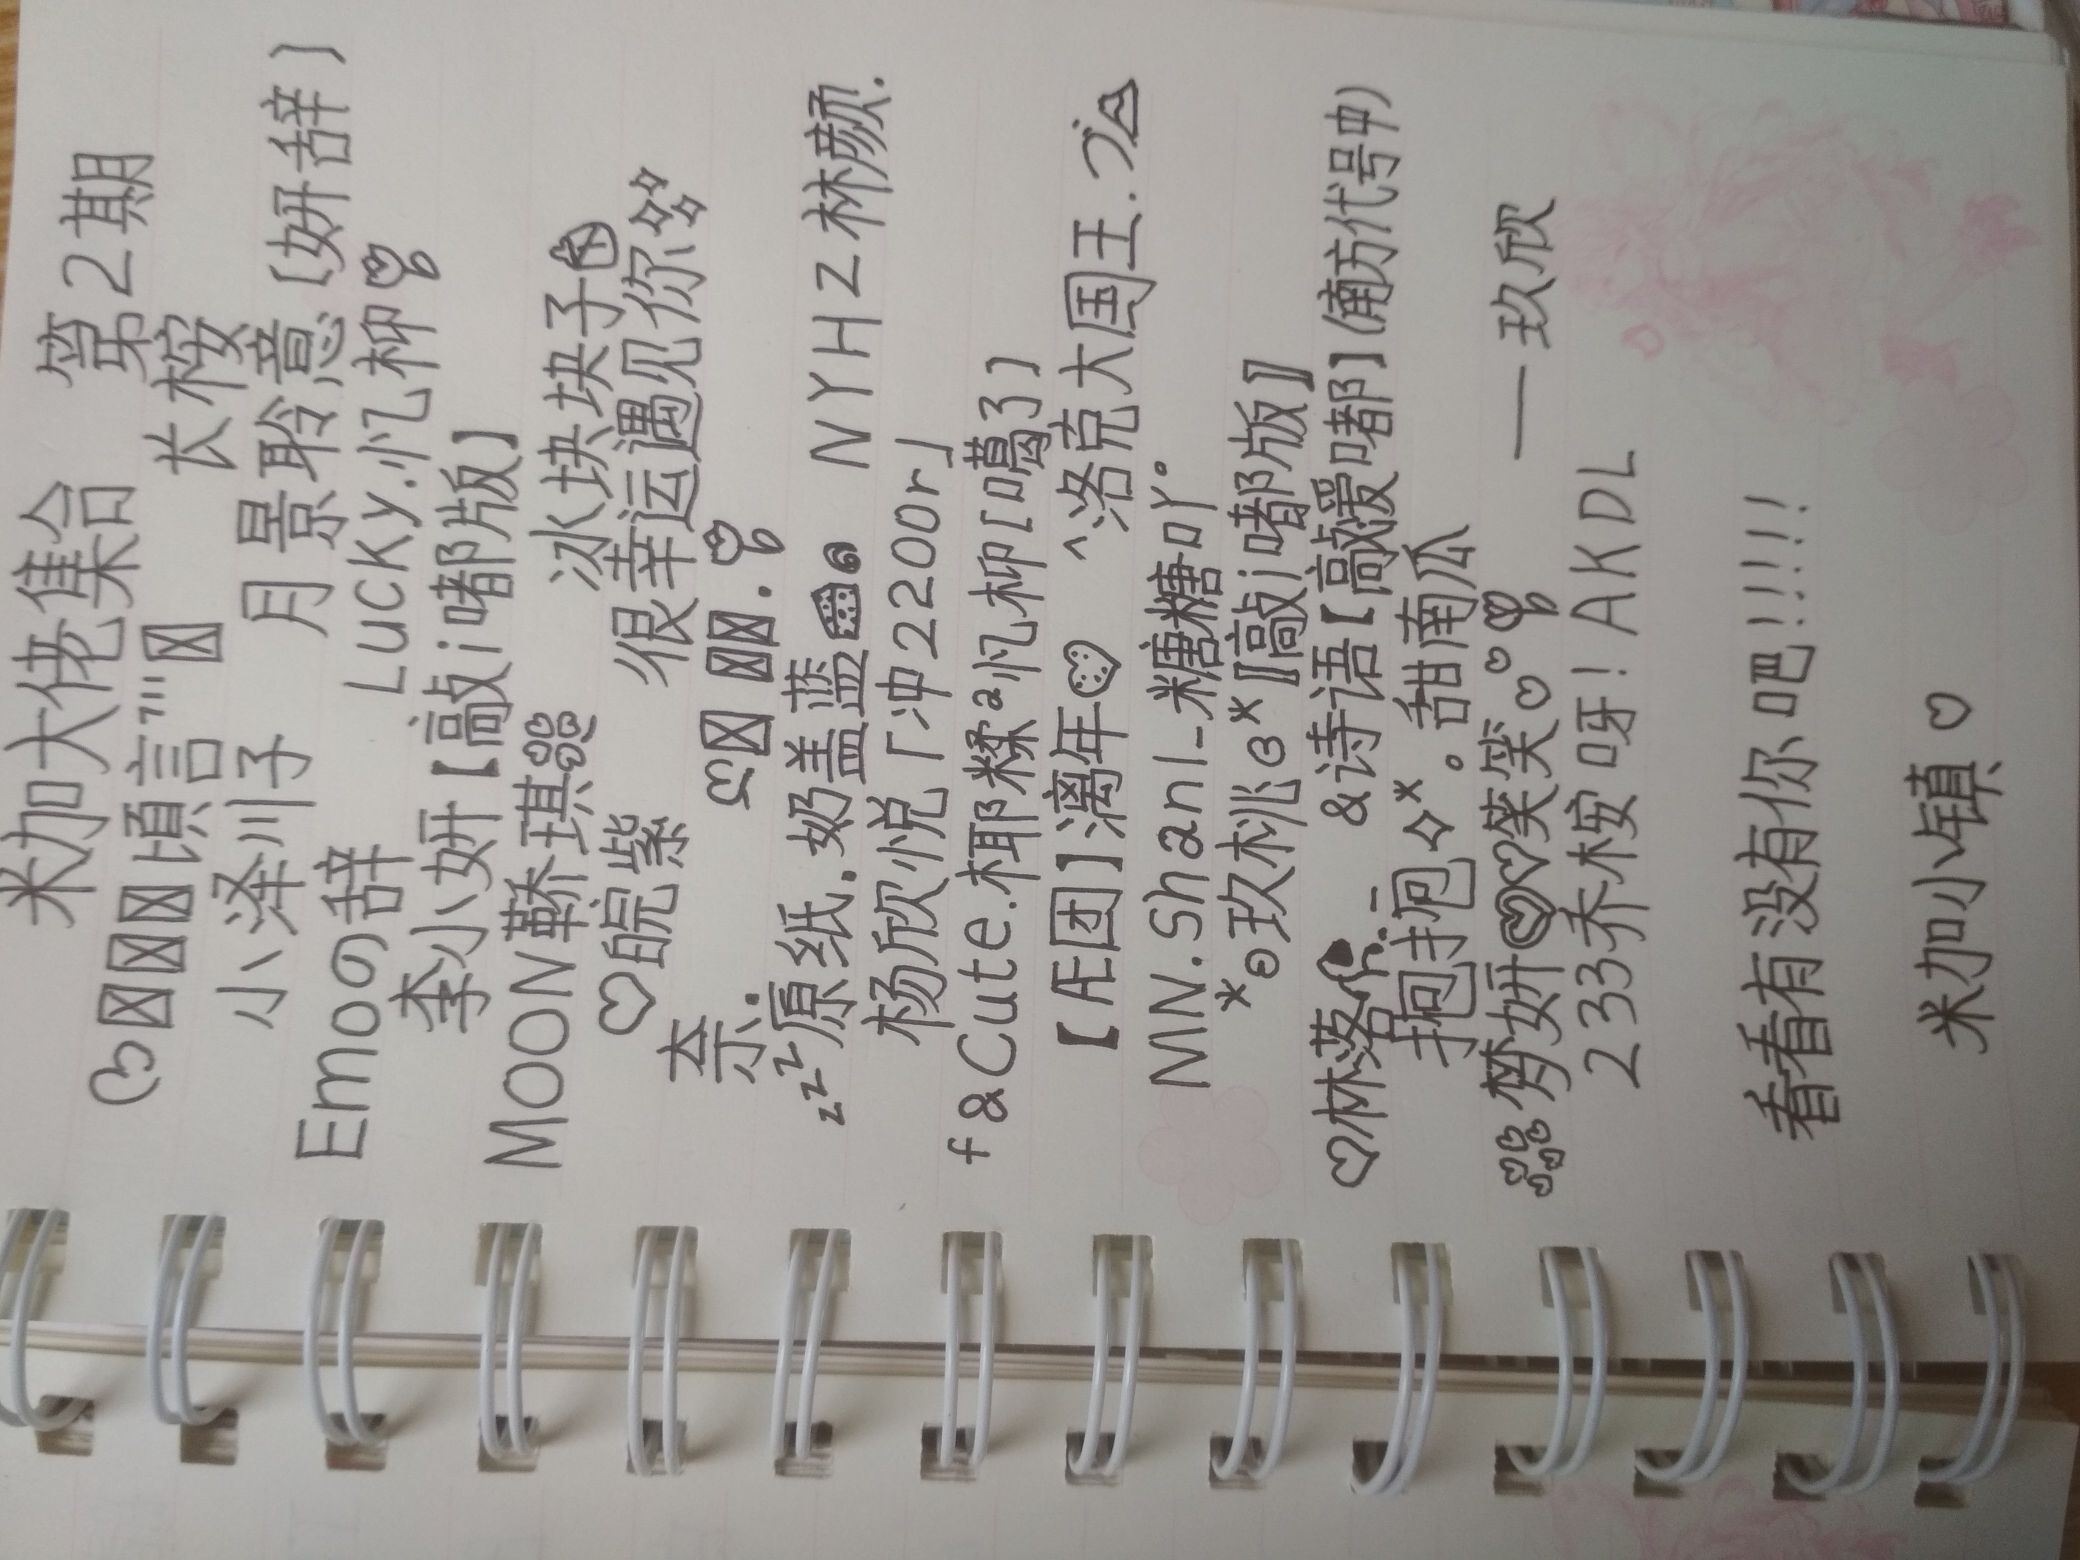 米加大佬集合 第2期
♡☒☒☒頃言"'☒ 长桉
小泽川子 月景聆意〔妍辞〕
Emoの辞 Lucky.忆柳
李小妍【敲i嘟版】
MOON 琪 冰块块子
♡皖紫 很幸运遇见你
奈. ☒☒☒.
zzz原纸.奶盖蓝 NYHZ林颜.
杨欣悦「冲2200r」
f&Cute.椰糅²忆柳[噶了]
【Æ团】漓年 ^洛克大国王.
MN.Shanl_糖糖吖。
*⊙玖桃⊙*〖敲i嘟版〗
♡林落 &诗语【敲爱嘟】(南方代号中)
抱抱✧* 。甜南瓜
梦妍♡♡笑笑♡♡ —玖欣
233乔桉呀!AKDL
看看有没有你吧!!!!!!
米加小镇♡